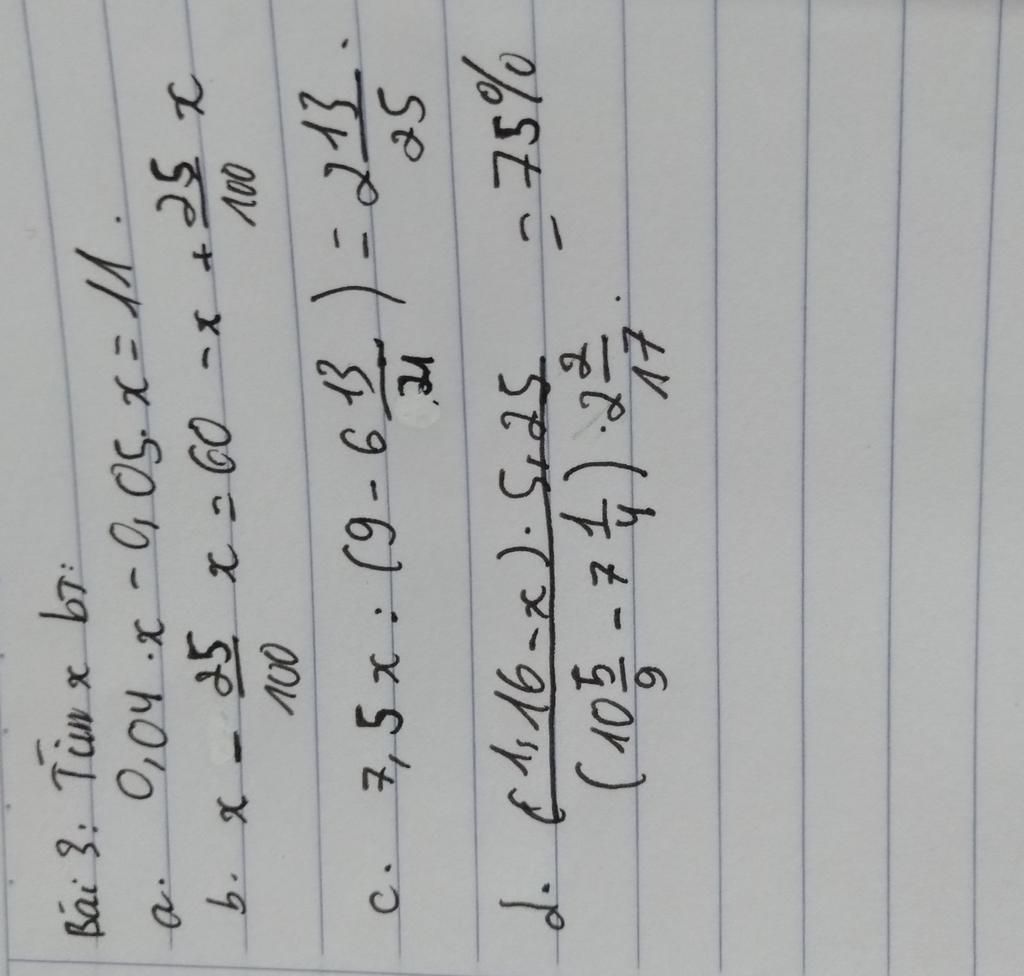 Bài 3: Tìm x bT:
a. 0,04.x - 0,05.x = 11.
b. x - 25/100 x = 60 - x + 25/100 x
c. 7,5x : (9 - 6 13/21) = 2 13/25.
d. ((1,16 - x).5,25)/((10 5/9 - 7 1/4).2 2/17) = 75%